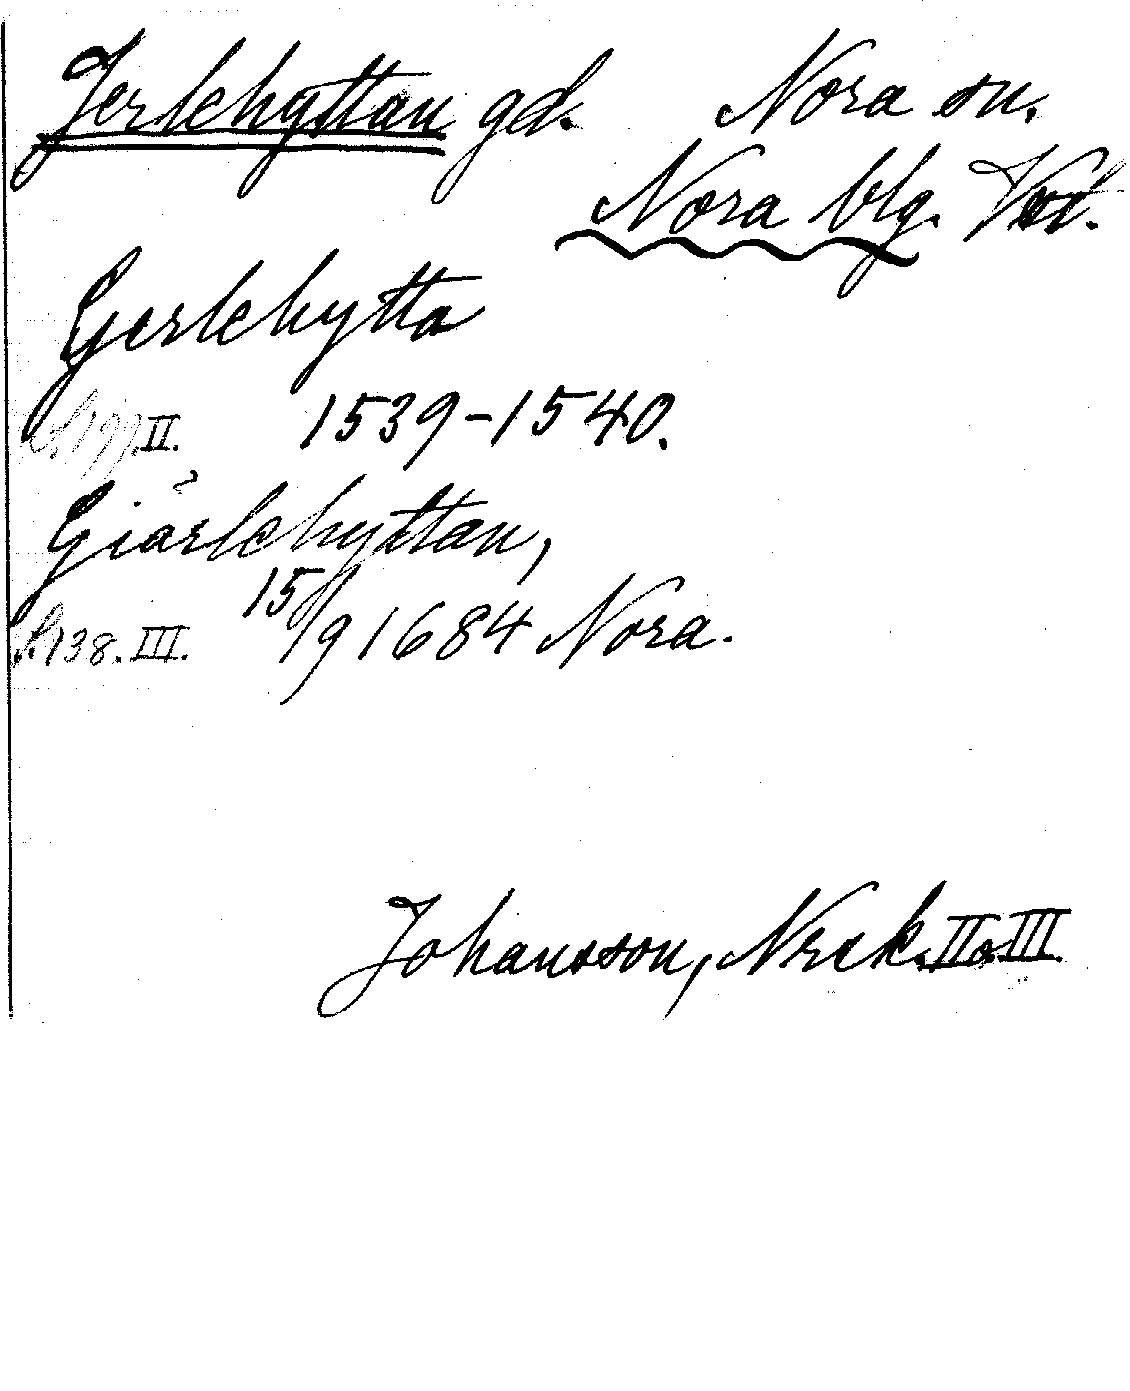 Jerlehyttan gd. Nora sn.
Nora blg. Vstl.
Gerlehytta
s. 199. II. 1539-1540.
Giärlehyttan,
s. 138. III. 15/9 1684 Nora.
Johansson, Nrck. II o. III.